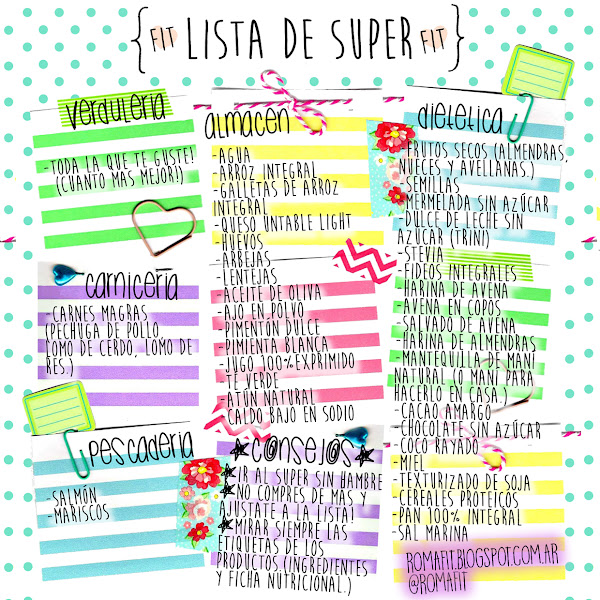 {FIT LISTA DE SUPER FIT}
VERDULERIA
-TODA LA QUE TE GUSTE!
(CUANTO MÁS MEJOR!)
CARNICERÍA
-CARNES MAGRAS
(PECHUGA DE POLLO,
LOMO DE CERDO, LOMO DE
RES.)
PESCADERIA
-SALMÓN
-MARISCOS
ALMACEN
-AGUA
-ARROZ INTEGRAL
-GALLETAS DE ARROZ
INTEGRAL
-QUESO UNTABLE LIGHT
-HUEVOS
-ARBEJAS
-LENTEJAS
-ACEITE DE OLIVA
-AJO EN POLVO
-PIMENTÓN DULCE
-PIMIENTA BLANCA
-JUGO 100% EXPRIMIDO
-TE VERDE
-ATÚN NATURAL
-CALDO BAJO EN SODIO
CONSEJOS
IR AL SUPER SIN HAMBRE
NO COMPRES DE MAS Y
AJUSTATE A LA LISTA!
MIRAR SIEMPRE LAS
ETIQUETAS DE LOS
PRODUCTOS (INGREDIENTES
Y FICHA NUTRICIONAL.)
DIETETICA
-FRUTOS SECOS (ALMENDRAS,
NUECES Y AVELLANAS.)
-SEMILLAS
-MERMELADA SIN AZÚCAR
-DULCE DE LECHE SIN
AZÚCAR (TRINI)
-STEVIA
-FIDEOS INTEGRALES
-HARINA DE AVENA
-AVENA EN COPOS
-SALVADO DE AVENA
-HARINA DE ALMENDRAS
-MANTEQUILLA DE MANÍ
NATURAL (O MANÍ PARA
HACERLO EN CASA.)
-CACAO AMARGO
-CHOCOLATE SIN AZÚCAR
-COCO RAYADO
-MIEL
-TEXTURIZADO DE SOJA
-CEREALES PROTEICOS
-PAN 100% INTEGRAL
-SAL MARINA
ROMAFIT.BLOGSPOT.COM.AR
@ROMAFIT